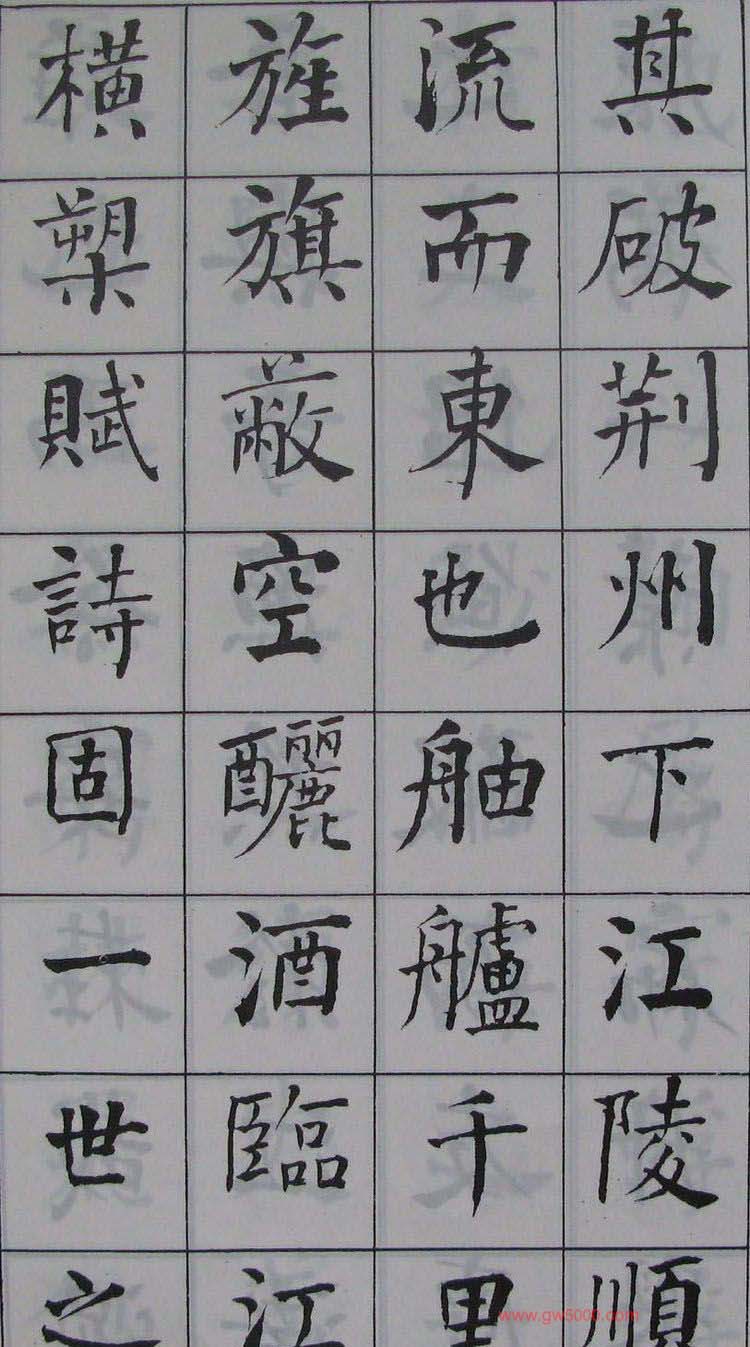 其破荆州下江陵順
流而東也舳艫千里
旌旗蔽空釃酒臨江
橫槊賦詩固一世之
www.gw5000.com